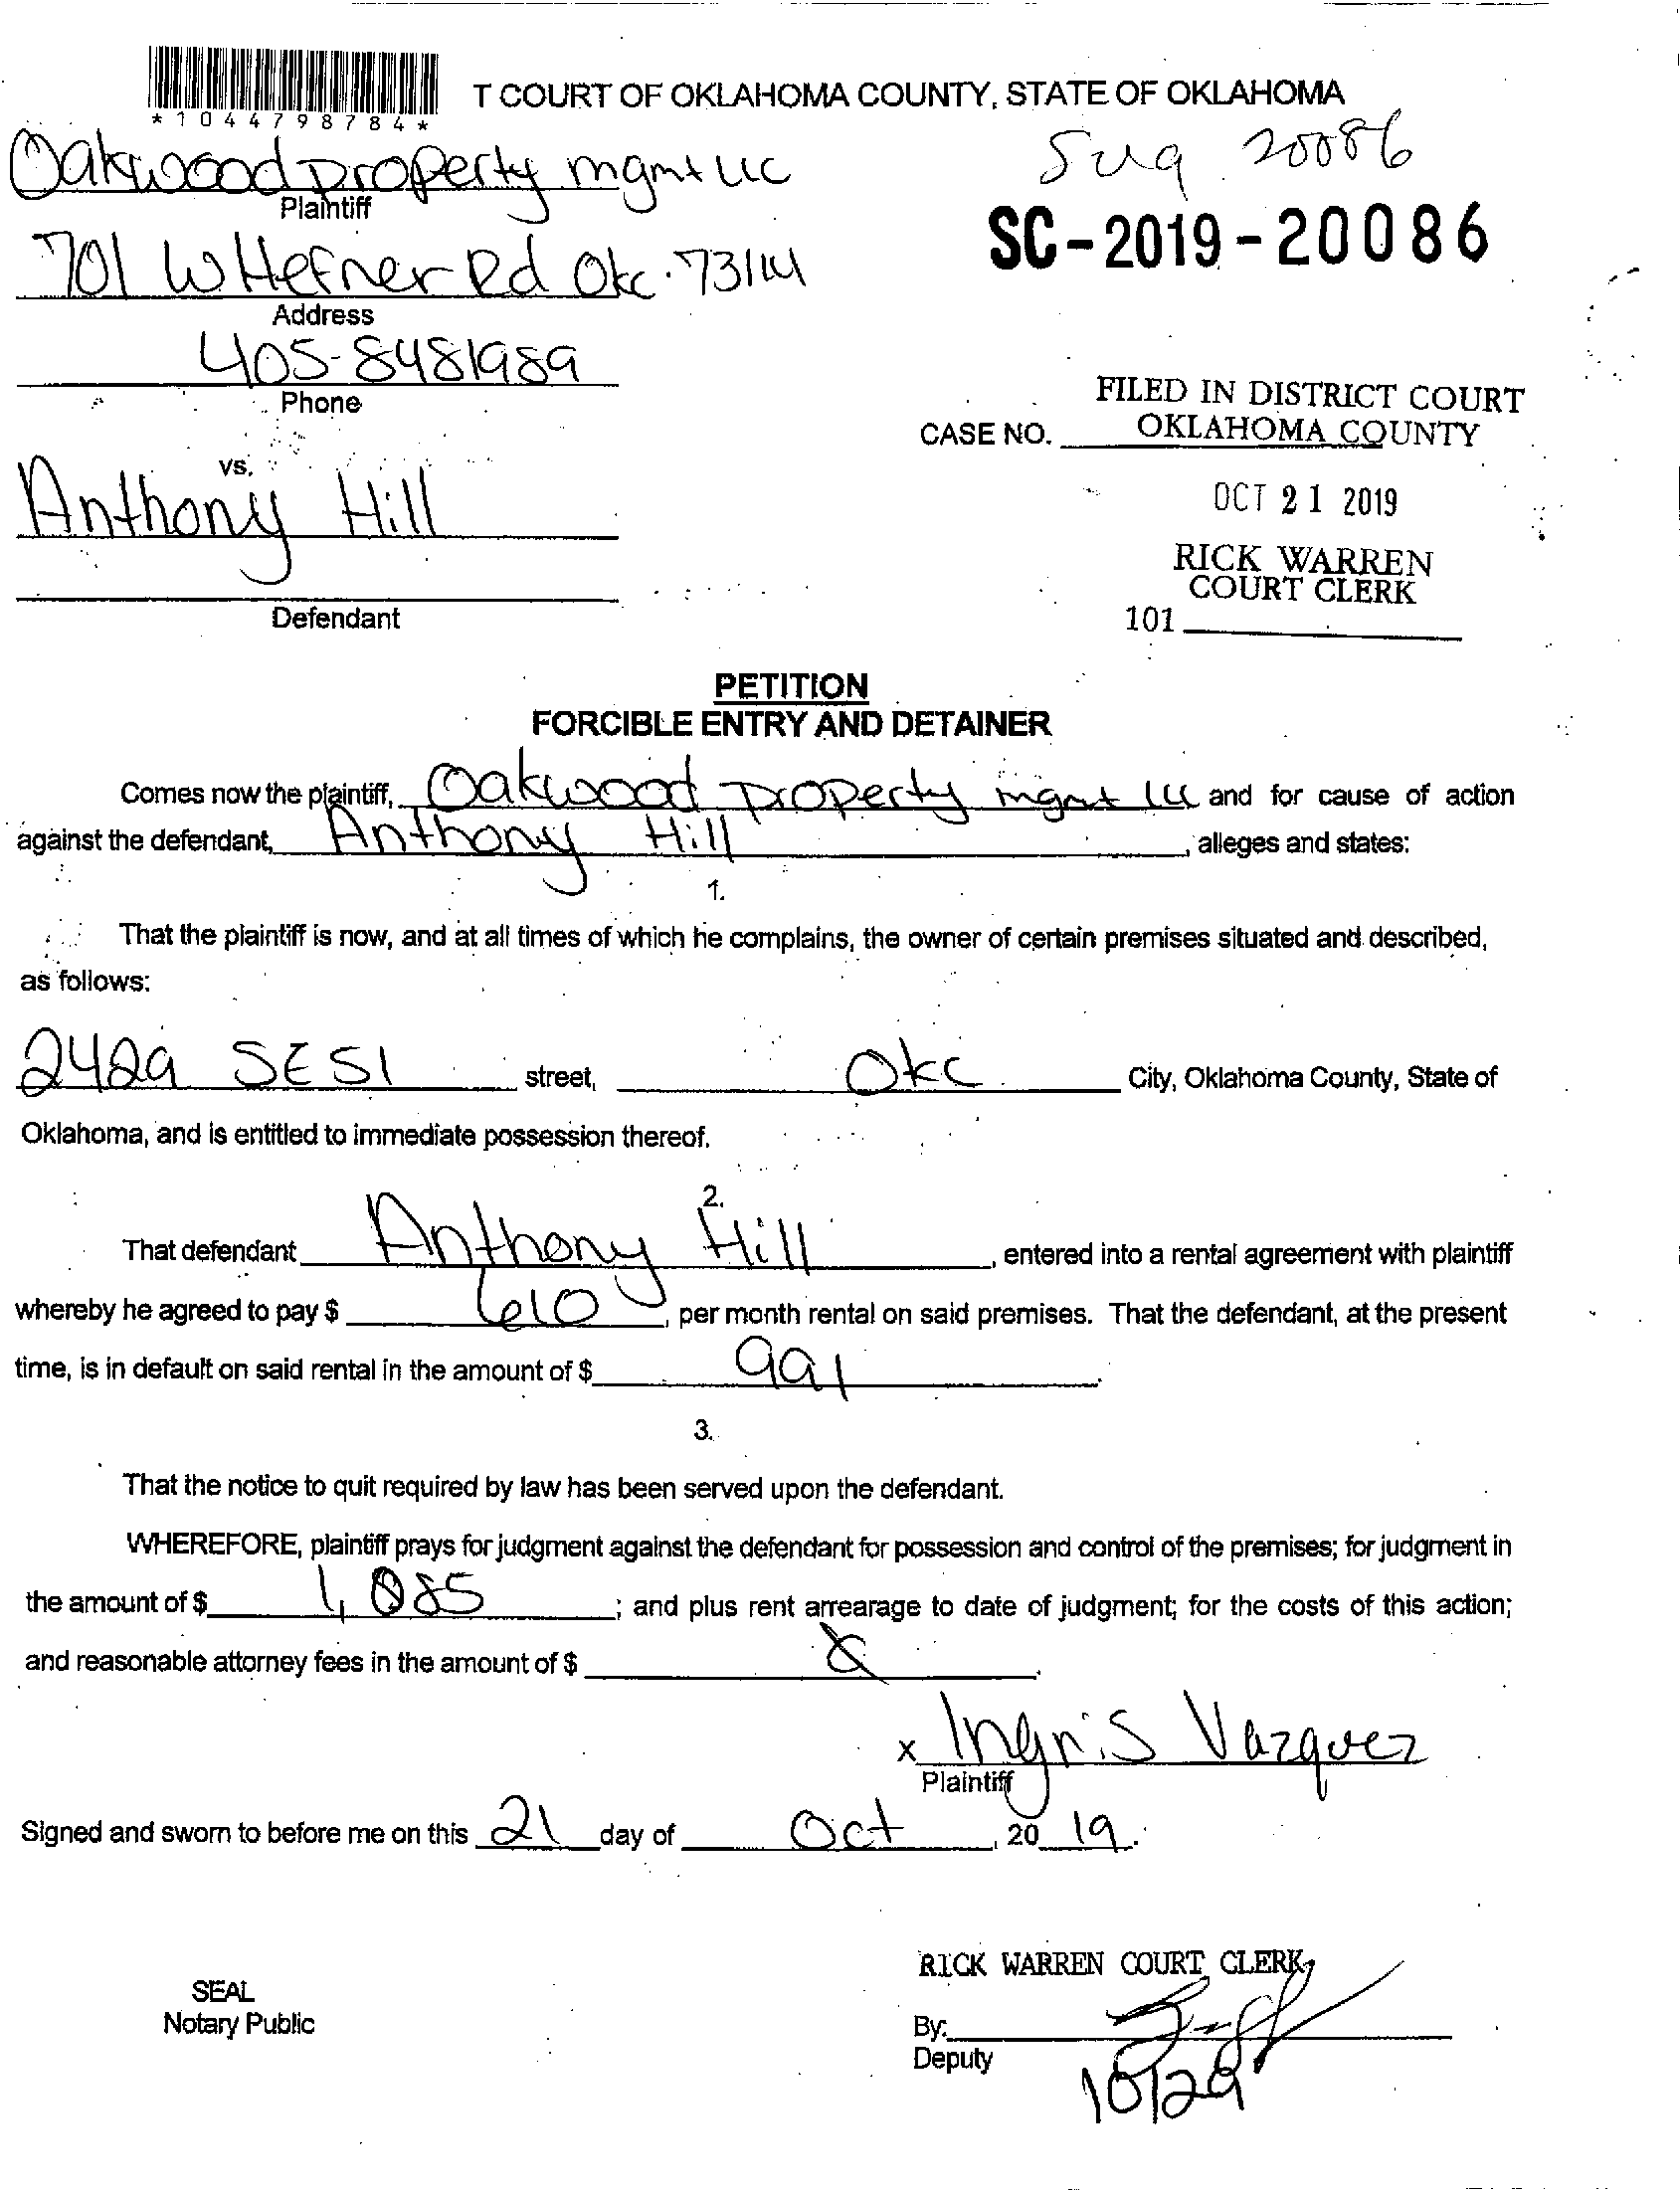 T COURT OF OKLAHOMA COUNTY, STATE OF OKLAHOMA
*1044798784*
Oakwood property mgmt LLC
20086
Plaintiff
SC-2019-20086
701 W Hefner Rd Okc. 73114
Address
405-8481989
Phone
FILED IN DISTRICT COURT
CASE NO. OKLAHOMA COUNTY
vs.
Anthony Hill
OCT 21 2019
RICK WARREN
COURT CLERK
Defendant
101
PETITION
FORCIBLE ENTRY AND DETAINER
Comes now the plaintiff, Oakwood property mgmt LLC and for cause of action
against the defendant, Anthony Hill, alleges and states:
1.
That the plaintiff is now, and at all times of which he complains, the owner of certain premises situated and described,
as follows:
2429 SE 51 street, Okc City, Oklahoma County, State of
Oklahoma, and is entitled to immediate possession thereof.
2.
That defendant Anthony Hill, entered into a rental agreement with plaintiff
whereby he agreed to pay $ 610, per month rental on said premises. That the defendant, at the present
time, is in default on said rental in the amount of $ 991.
3.
That the notice to quit required by law has been served upon the defendant.
WHEREFORE, plaintiff prays for judgment against the defendant for possession and control of the premises; for judgment in
the amount of $ 1,085; and plus rent arrearage to date of judgment; for the costs of this action;
and reasonable attorney fees in the amount of $
x Ingris Vazquez
Plaintiff
Signed and sworn to before me on this 21 day of Oct, 20 19.
RICK WARREN COURT CLERK
SEAL
Notary Public
By:
Deputy
10/29